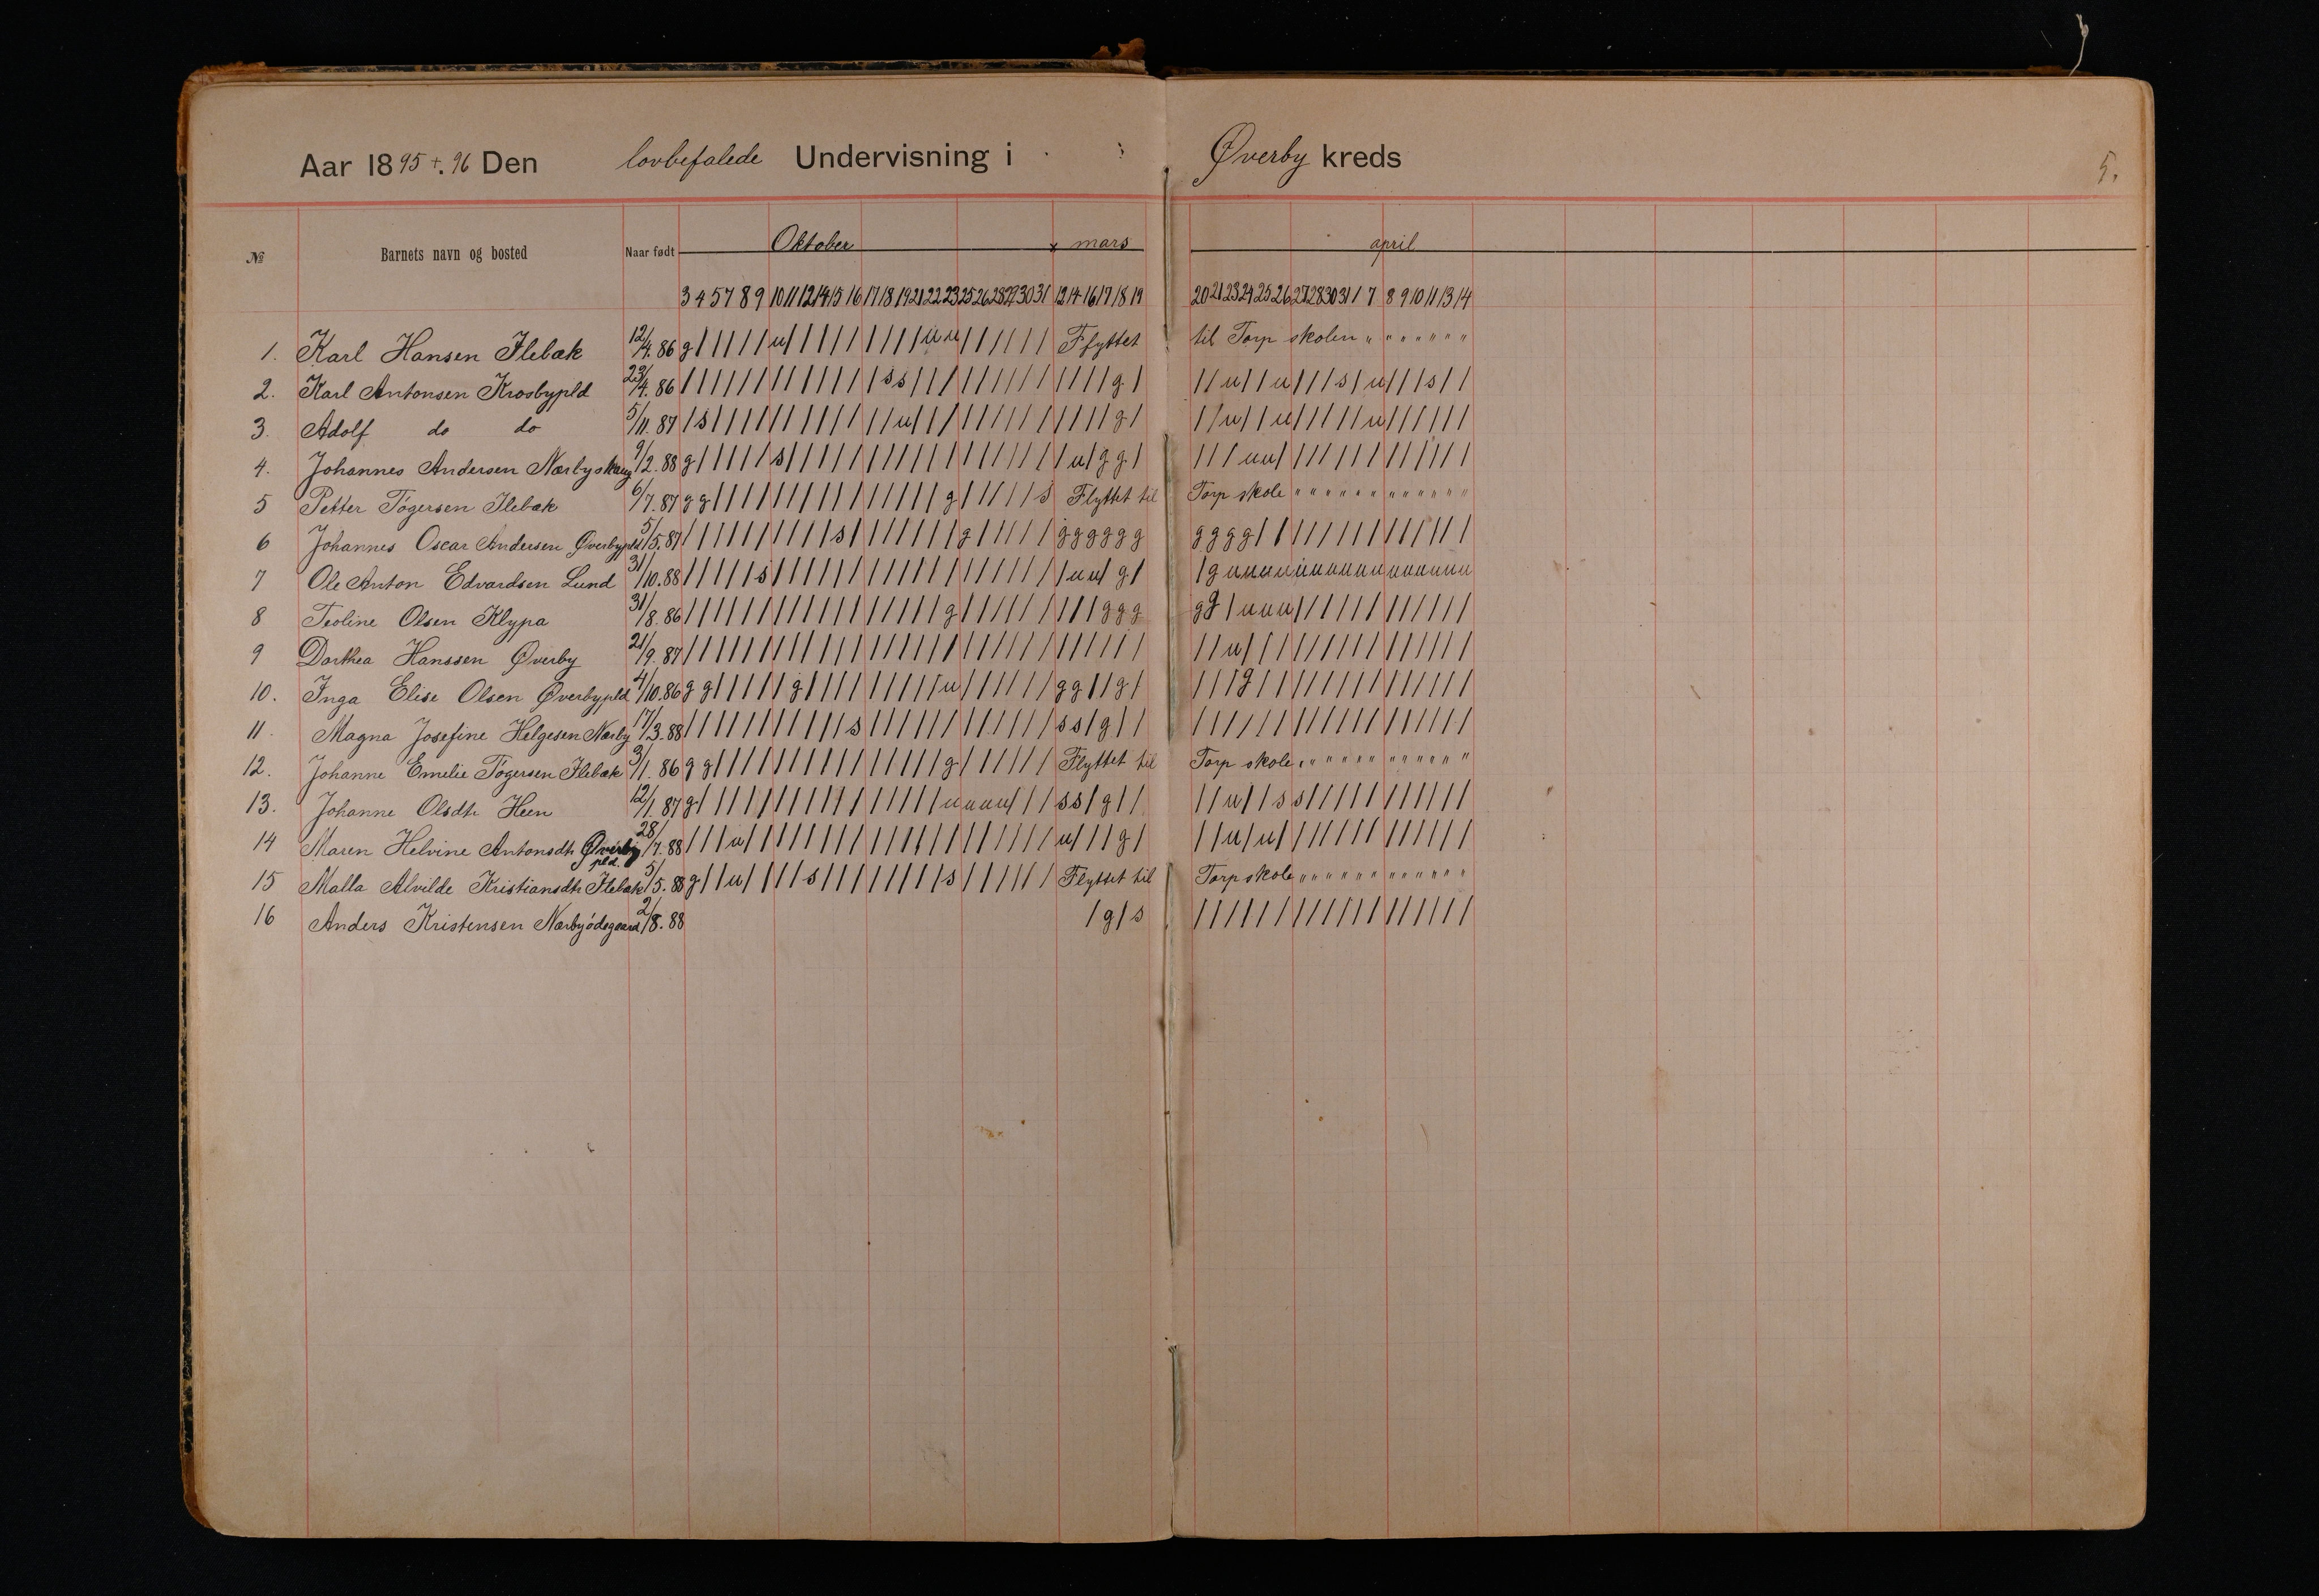 Aar 1895 +. 96 Den lovbefalede Undervisning i Øverby kreds 5.
№ Barnets navn og bosted Naar født Oktober x mars april
3 4 5 7 8 9 10 11 12 14 15 16 17 18 19 21 22 23 25 26 28 29 30 31 12 14 16 17 18 19 20 21 23 24 25 26 27 28 30 31 1 7 8 9 10 11 13 14
1. Karl Hansen Ilebæk 12/4. 86 g / / / / / u / / / / / / / / / u u / / / / / / Flyttet til Torp skolen " " " " " " "
2. Karl Antonsen Krosbypld 23/4. 86 / / / / / / / / / / / / / s s / / / / / / / / / / / / / g / / / u / / u / / / s / u / / / s / /
3. Adolf do do 5/11. 87 / s / / / / / / / / / / / / u / / / / / / / / / / / / / g / / / u / / u / / / / / u / / / / / /
4. Johannes Andersen Nærbyskaug 9/2. 88 g / / / / / s / / / / / / / / / / / / / / / / / / u / g g / / / / u u / / / / / / / / / / / / /
5 Petter Tógersen Ilebæk 6/7. 87 g g / / / / / / / / / / / / / / / g / / / / / s Flyttet til Torp skole " " " " " " " " " " " " "
6 Johannes Oscar Andersen Øverbypld 5/5. 87 / / / / / / / / / / s / / / / / / / g / / / / / g g g g g g g g g g / / / / / / / / / / / / / /
7 Ole Anton Edvardsen Lund 31/10. 88 / / / / / s / / / / / / / / / / / / / / / / / / / u u / g / / g u u u u u u u u u u u u u u u u
8 Teoline Olsen Klypa 31/8. 86 / / / / / / / / / / / / / / / / / g / / / / / / / / / g g g g g / u u u / / / / / / / / / / / /
9 Dorthea Hanssen Øverby 21/9. 87 / / / / / / / / / / / / / / / / / / / / / / / / / / / / / / / / u / / / / / / / / / / / / / / /
10. Inga Elise Olsen Øverbypld 4/10. 86 g g / / / / / g / / / / / / / / / u / / / / / / g g / / g / / / / g / / / / / / / / / / / / / /
11. Magna Josefine Helgesen Nærby 17/3. 88 / / / / / / / / / / / s / / / / / / / / / / / / s s / g / / / / / / / / / / / / / / / / / / / /
12. Johanne Emelie Tógersen Ilebæk 3/1. 86 g g / / / / / / / / / / / / / / / g / / / / / / Flyttet til Torp skole " " " " " " " " " " " " "
13. Johanne Olsdtr Heen 12/1. 87 g / / / / / / / / / / / / / / / / u u u u / / / s s / g / / / / u / / s s / / / / / / / / / / /
14 Maren Helvine Antonsdtr Øverby 28/7. 88 / / / u / / / / / / / / / / / / / / / / / / / / u / / / g / / / u / u / / / / / / / / / / / / /
pld.
15 Malla Alvilde Kristiansdtr Ilebæk 5/5. 88 g / / u / / / / s / / / / / / / / s / / / / / / Flyttet til Torp skole " " " " " " " " " " " " "
16 Anders Kristensen Nærbyódegaard 2/8. 88 / g / s / / / / / / / / / / / / / / / / / /